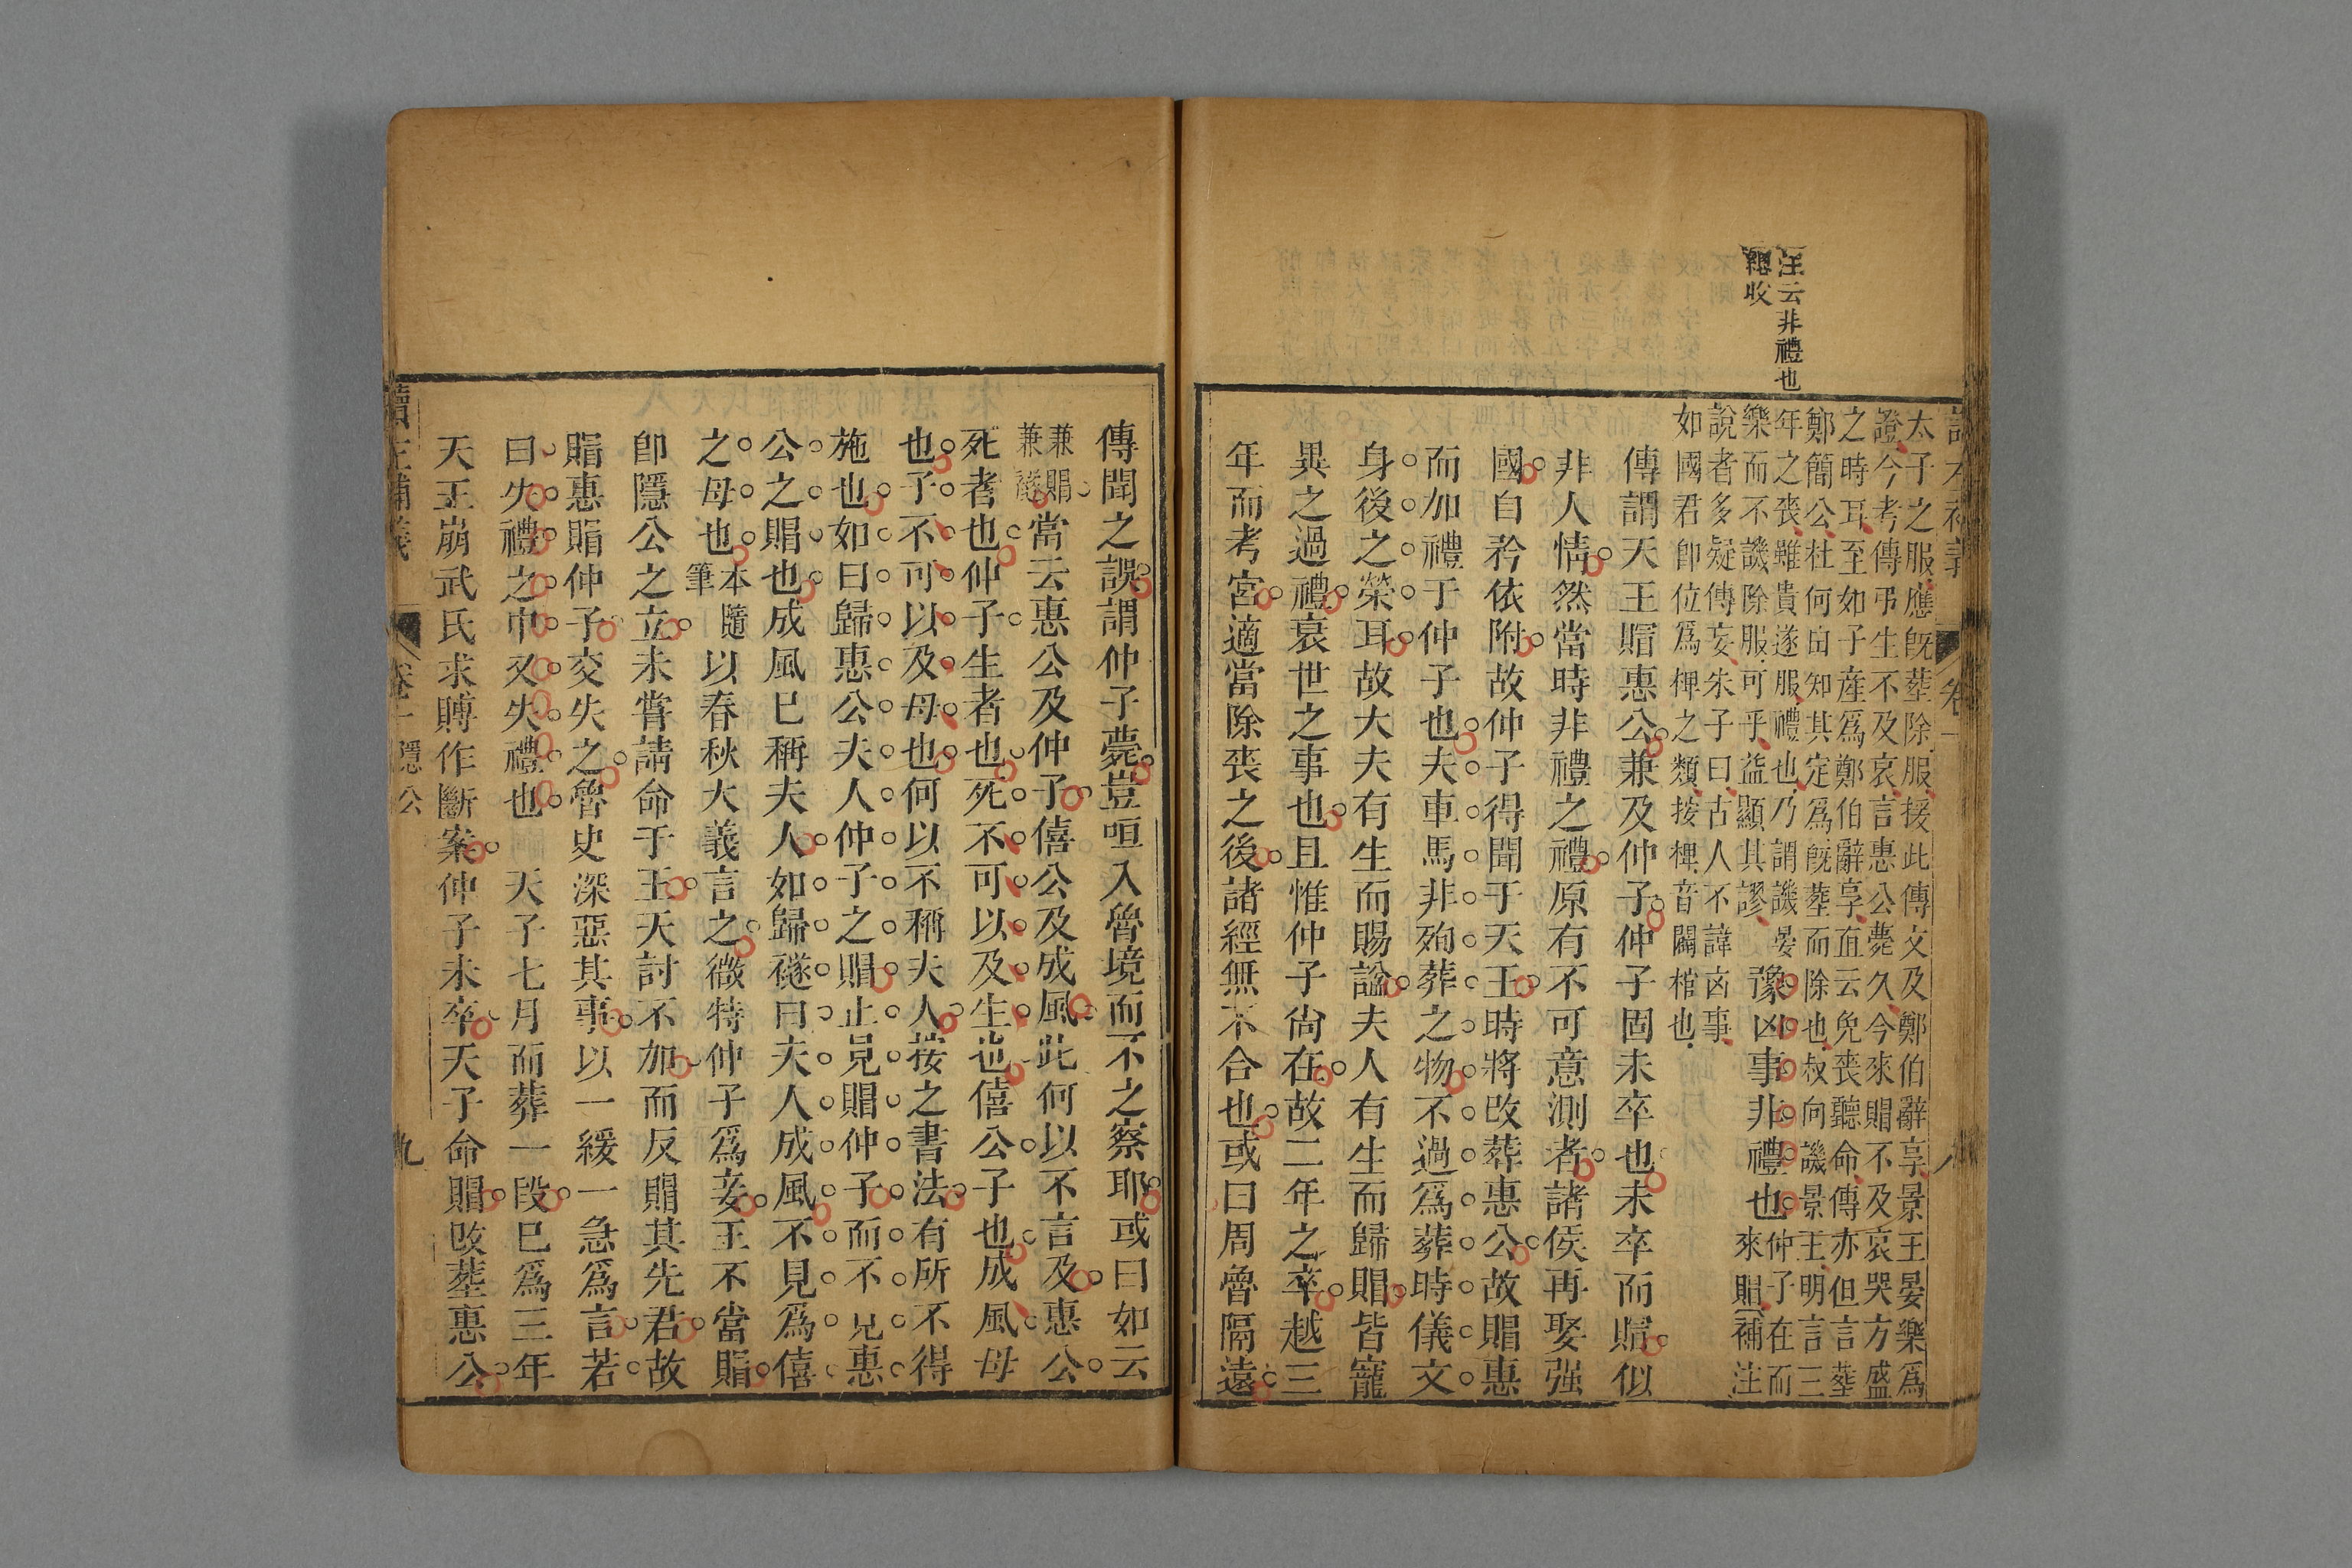 汪云非禮也
總收
讀左補義 卷一
太子之服應既葬除服按此傳文及鄭伯辭享景王宴樂爲
證今考傳弔生不及哀言惠公薨久今來賵不及哀哭方盛
之時耳至如子產爲鄭伯辭享直云免喪聽命傳亦但言葬
鄭簡公杜何由知其定爲既葬而除也叔向譏景王明言三
年之喪雖貴遂服禮也乃謂譏晏
樂而不譏除服可乎益顯其謬
豫凶事非禮也仲子在而
來賵補注
說者多疑傳妄朱子曰古人不諱凶事
如國君卽位爲椑之類按椑音闢棺也
傳謂天王賵惠公兼及仲子仲子固未卒也未卒而賵似
非人情然當時非禮之禮原有不可意測者諸侯再娶强
國自矜依附故仲子得聞于天王時將改葬惠公故賵惠
而加禮于仲子也夫車馬非殉葬之物不過爲葬時儀文
身後之榮耳故大夫有生而賜諡夫人有生而歸賵皆寵
異之過禮衰世之事也且惟仲子尙在故二年之卒越三
年而考宮適當除喪之後諸經無不合也或曰周魯隔遠
傳聞之誤謂仲子薨豈咺入魯境而不之察耶或曰如云
兼賵
兼襚
當云惠公及仲子僖公及成風此何以不言及惠公
死者也仲子生者也死不可以及生也僖公子也成風母
也子不可以及母也何以不稱夫人按之書法有所不得
施也如曰歸惠公夫人仲子之賵止見賵仲子而不見惠
公之賵也成風已稱夫人如歸襚曰夫人成風不見爲僖
之母也本隨
筆
以春秋大義言之微特仲子爲妾王不當賵
卽隱公之立未嘗請命于王天討不加而反賵其先君故
賵惠賵仲子交失之魯史深惡其事以一緩一急爲言若
曰失禮之中又失禮也 天子七月而葬一段已爲三年
天王崩武氏求賻作斷案仲子未卒天子命賵改葬惠公
讀左補義 卷一 隱公 九